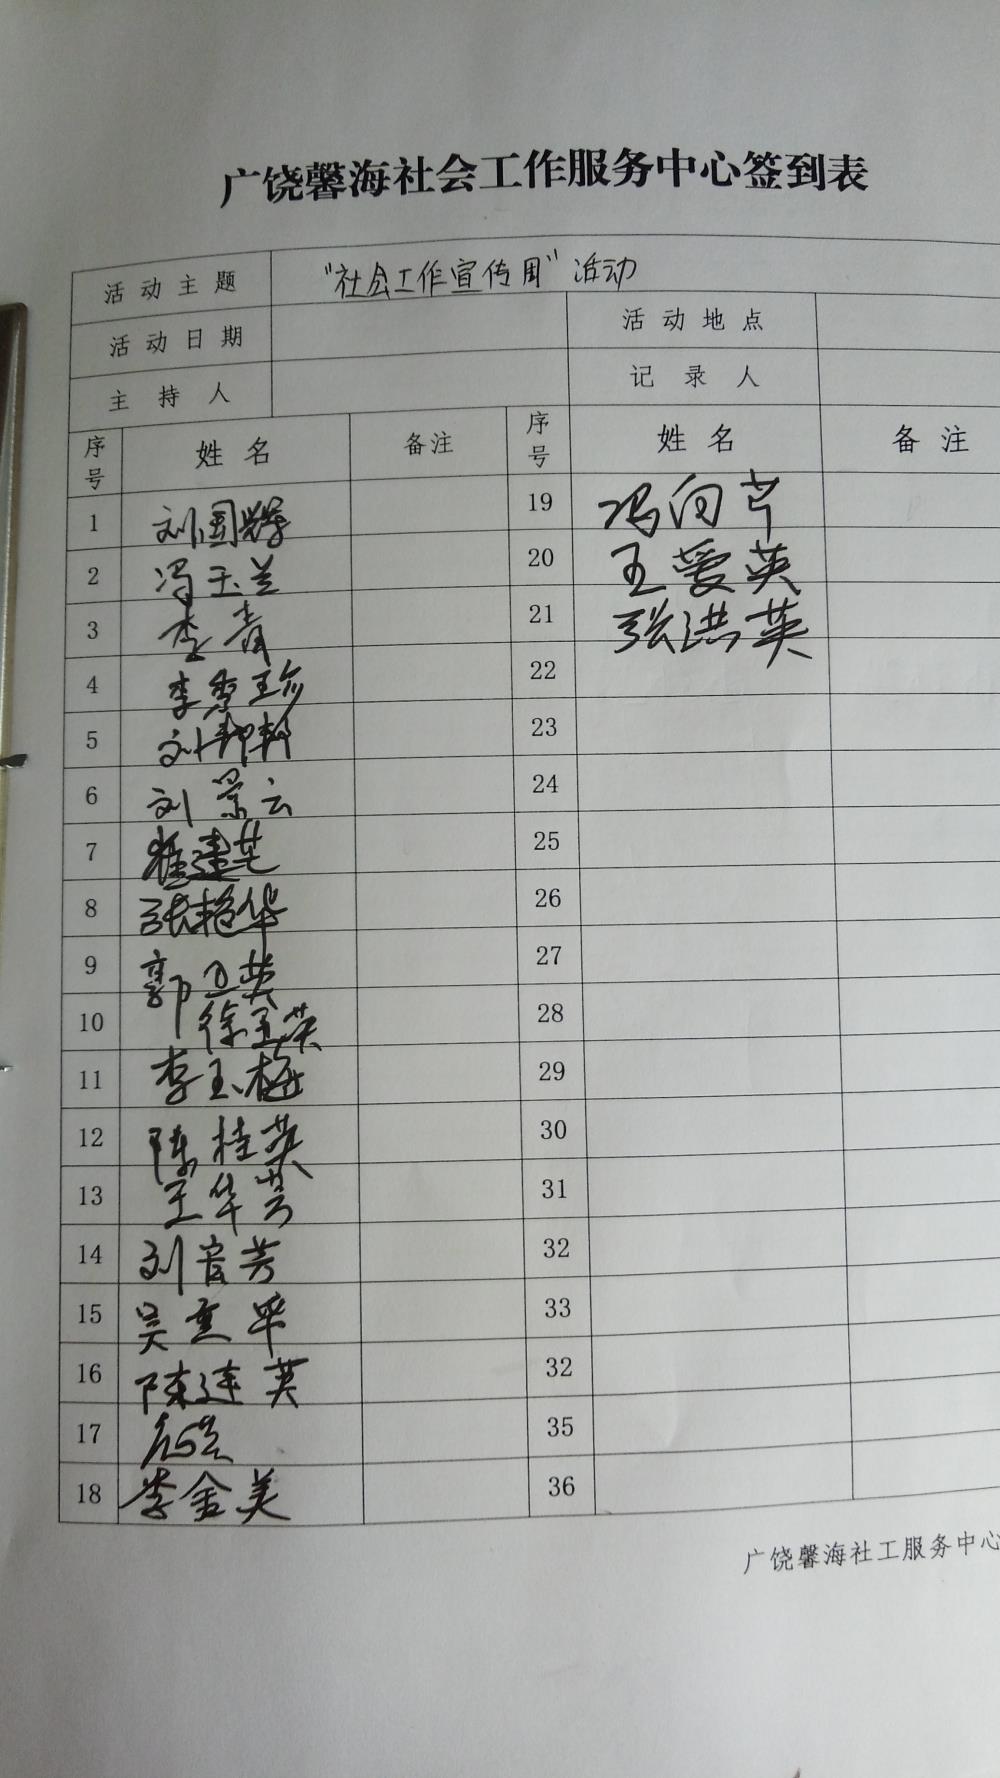 广饶馨海社会工作服务中心签到表
活动主题 “社会工作宣传周”活动
活动日期 活动地点
主持人 记录人
序号 姓名 备注 序号 姓名 备注
1 刘国辉 19 冯向芹
2 冯玉兰 20 王爱英
3 李青 21 张洪英
4 李秀珍 22
5 刘 23
6 刘景云 24
7 崔建芒 25
8 张艳华 26
9 郭卫英 27
10 徐玉英 28
11 李玉梅 29
12 陈桂英 30
13 王华芳 31
14 刘官芳 32
15 吴 33
16 陈连英 32
17 35
18 李金美 36
广饶馨海社工服务中心